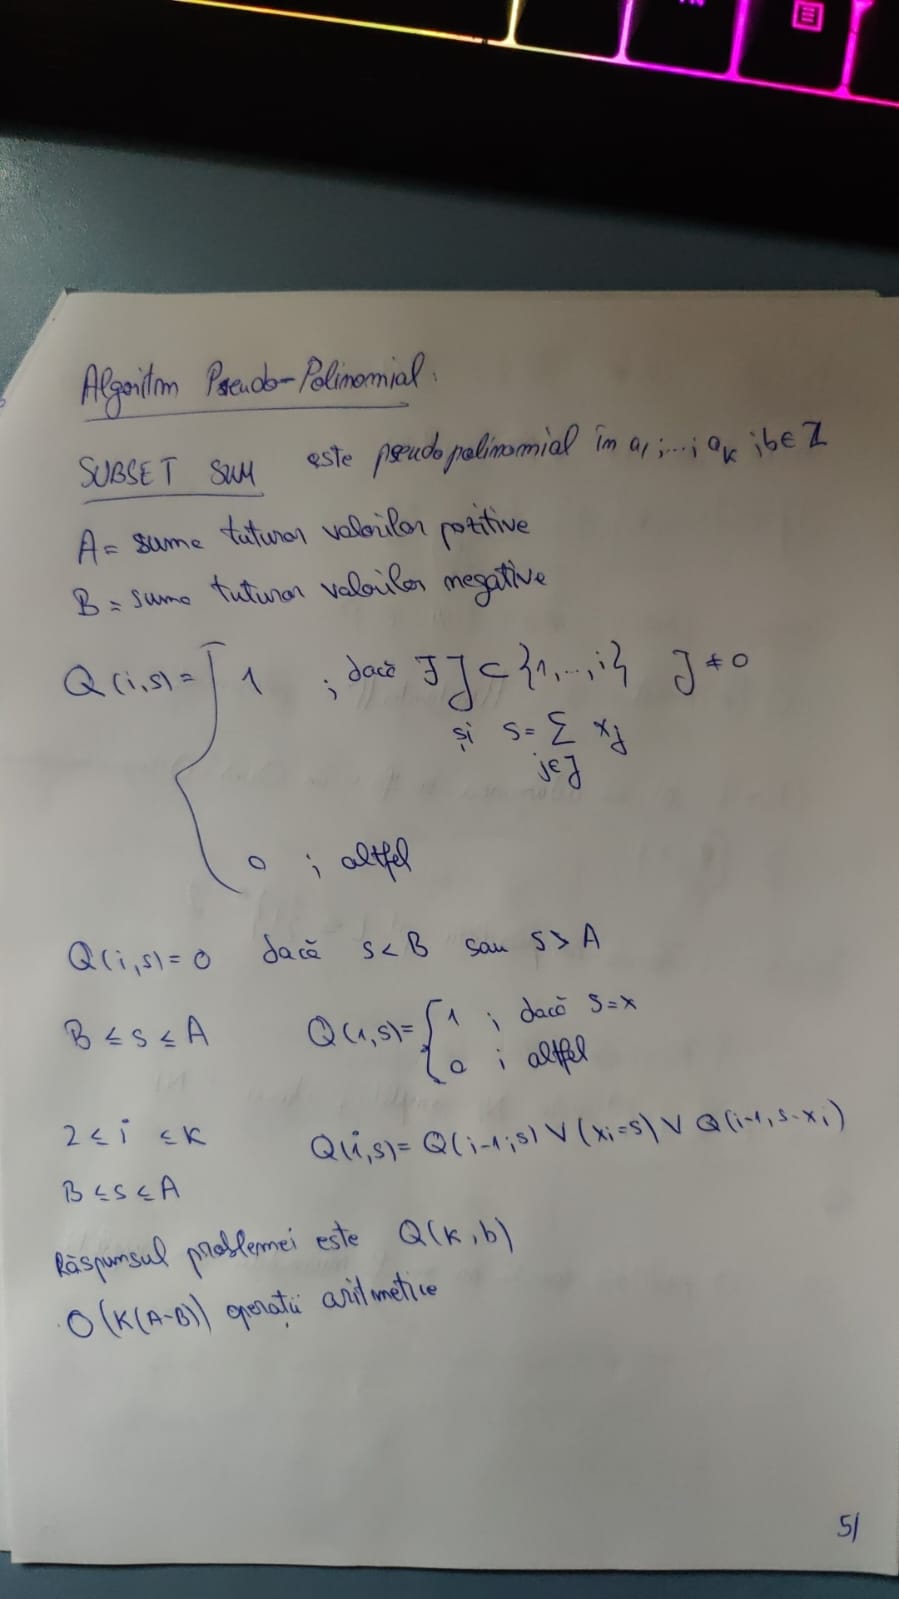 Algoritm Pseudo-Polinomial:
SUBSET SUM este pseudopolinomial în a₁;...; aₖ ; b ∈ ℤ
A = suma tuturor valorilor pozitive
B = suma tuturor valorilor negative
Q(i,s) = { 1 ; dacă ∃ J ⊂ {1,...,i} J ≠ 0
și s = Σ xj
j∈J
0 ; altfel
Q(i,s) = 0 dacă s < B sau s > A
B ≤ s ≤ A Q(1,s) = { 1 ; dacă s = x
0 ; altfel
2 ≤ i ≤ K Q(i,s) = Q(i-1;s) ∨ (xi = s) ∨ Q(i-1, s-xi)
B ≤ s ≤ A
Răspunsul problemei este Q(K,b)
O(K(A-B)) operații aritmetice
51